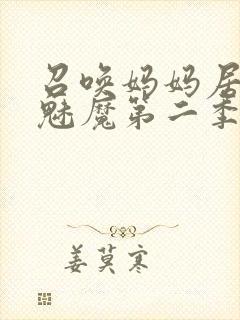 召唤妈妈居
魅魔第二季
姜莫寒